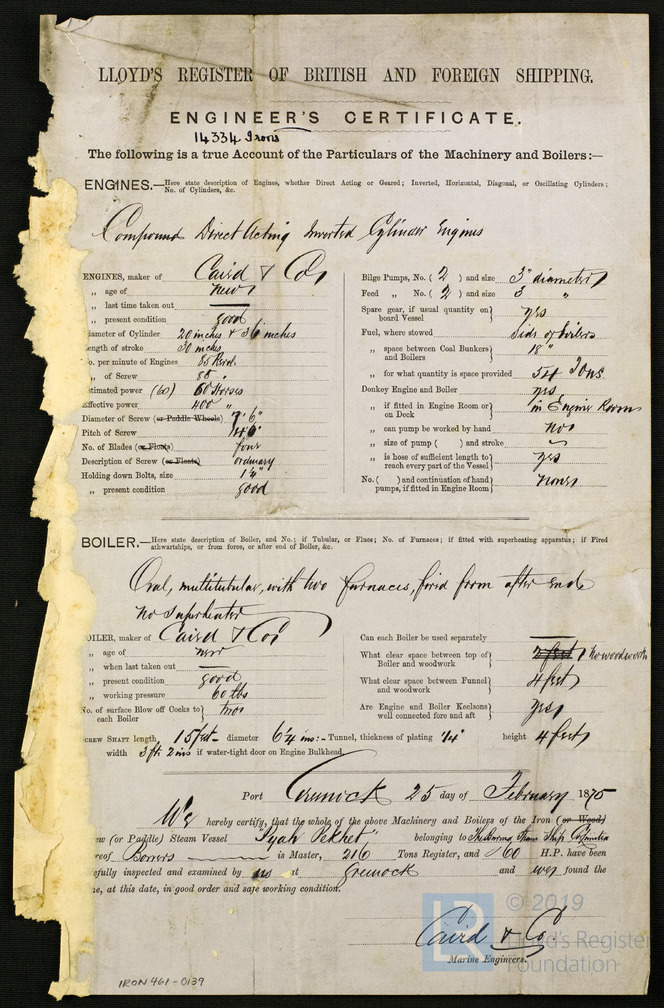 LLOYD'S REGISTER OF BRITISH AND FOREIGN SHIPPING.
ENGINEER'S CERTIFICATE.
14334 Irons
The following is a true Account of the Particulars of the Machinery and Boilers:—
ENGINES.—Here state description of Engines, whether Direct Acting or Geared; Inverted, Horizontal, Diagonal, or Oscillating Cylinders;
No. of Cylinders, &c.
Compound Direct Acting Inverted Cylinder Engines
ENGINES, maker of Caird & Co
„ age of new
„ last time taken out —
„ present condition good
iameter of Cylinder 20 inches & 36 inches
ength of stroke 30 inches
o. per minute of Engines 85
„ of Screw 85 „
stimated power (60) 60 Horses
ffective power 400 „
Diameter of Screw (or Paddle Wheels) 9' 6"
Pitch of Screw 14' 6"
No. of Blades (or Floats) four
Description of Screw (or Floats) ordinary
Holding down Bolts, size
„ present condition good
Bilge Pumps, No. ( 2 ) and size 3" diameter
Feed „ No. ( 2 ) and size 3 „
Spare gear, if usual quantity on board Vessel yes
Fuel, where stowed Side of boilers
„ space between Coal Bunkers and Boilers 18"
„ for what quantity is space provided 54 Tons
Donkey Engine and Boiler yes
„ if fitted in Engine Room or on Deck in Engine Room
„ can pump be worked by hand no
„ size of pump ( ) and stroke
„ is hose of sufficient length to reach every part of the Vessel yes
No. ( ) and continuation of hand pumps, if fitted in Engine Room none
BOILER.—Here state description of Boiler, and No.; if Tubular, or Flues; No. of Furnaces; if fitted with superheating apparatus; if Fired
athwartships, or from force, or after end of Boiler, &c.
Oval, multitubular, with two furnaces, fired from after end
no superheater
OILER, maker of Caird & Co
„ age of new
„ when last taken out —
„ present condition good
„ working pressure 60 lbs
No. of surface Blow off Cocks to each Boiler two
Can each Boiler be used separately —
What clear space between top of Boiler and woodwork 2 feet no woodwork
What clear space between Funnel and woodwork 4 feet
Are Engine and Boiler Keelsons well connected fore and aft yes
CREW SHAFT length, 15 feet diameter 6¼ ins:- Tunnel, thickness of plating ¼" height 4 feet
width 3 ft. 2 ins if water-tight door on Engine Bulkhead,
Port Greenock 25 day of February 1875
We hereby certify, that the whole of the above Machinery and Boilers of the Iron (or Wood)
ew (or Paddle) Steam Vessel "Pyah Pekhet" belonging to
ereof Bowers is Master, 216 Tons Register, and 60 H.P. have been
efully inspected and examined by us at Greenock and we found the
ne, at this date, in good order and safe working condition.
Caird & Co.
Marine Engineers.
LR © 2019
Lloyd's Register
Foundation
IRON 461-0139